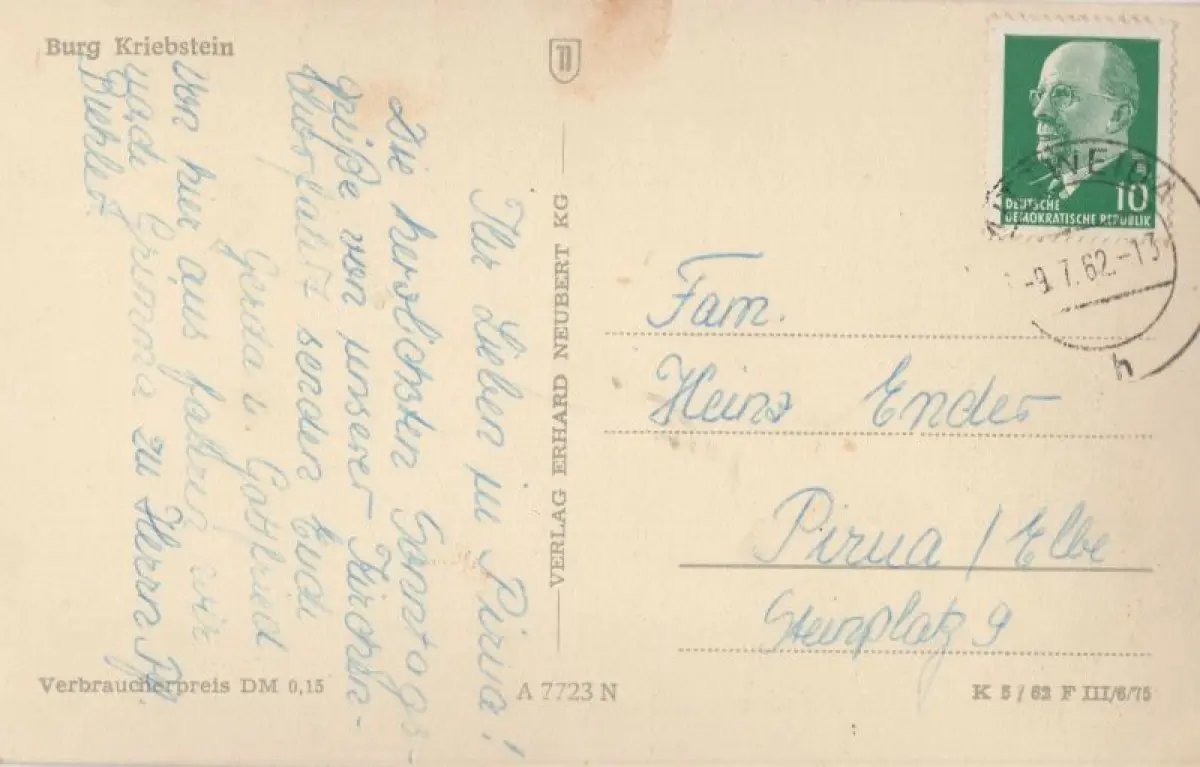 Burg Kriebstein
Ihr Lieben in Pirna!
Die herzlichsten Sonntags-
grüße von unserer Kirchen-
chorfahrt senden Euch
Gerda u. Gottfried
Von hier aus fahren wir
nach Grimma zu Herrn
VERLAG ERHARD NEUBERT KG
DEUTSCHE
DEMOKRATISCHE REPUBLIK
10
-9.7.62.-13
h
Fam.
Heinz Ender
Pirna / Elbe
Steinplatz 9
Verbraucherpreis DM 0,15
A 7723 N
K 5/62 F III/6/75